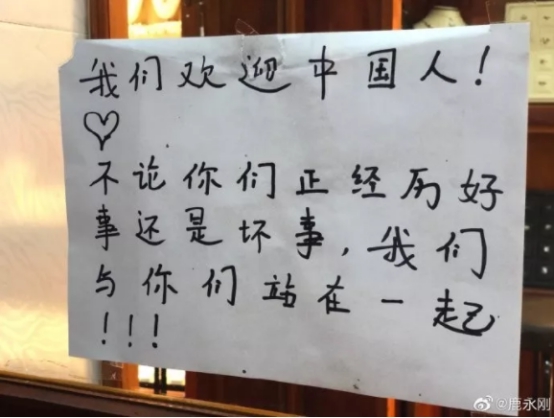 我们欢迎中国人！
♡
不论你们正经历好
事还是坏事，我们
与你们站在一起
！！！
@鹿永刚